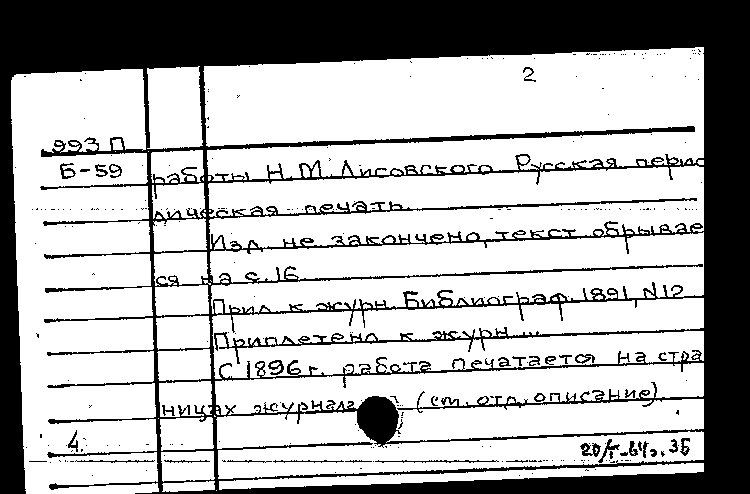 2
993 П
Б-59
работы Н.М. Лисовского Русская перио
дическая печать.
Изд. не закончено, текст обрывае
ся на с. 16
Прил. к журн. Библиограф. 1891, N12
Приплетено к журн. ...
С 1896 г. работа печатается на стра
ницах журнала (см. отд. описание)
4.